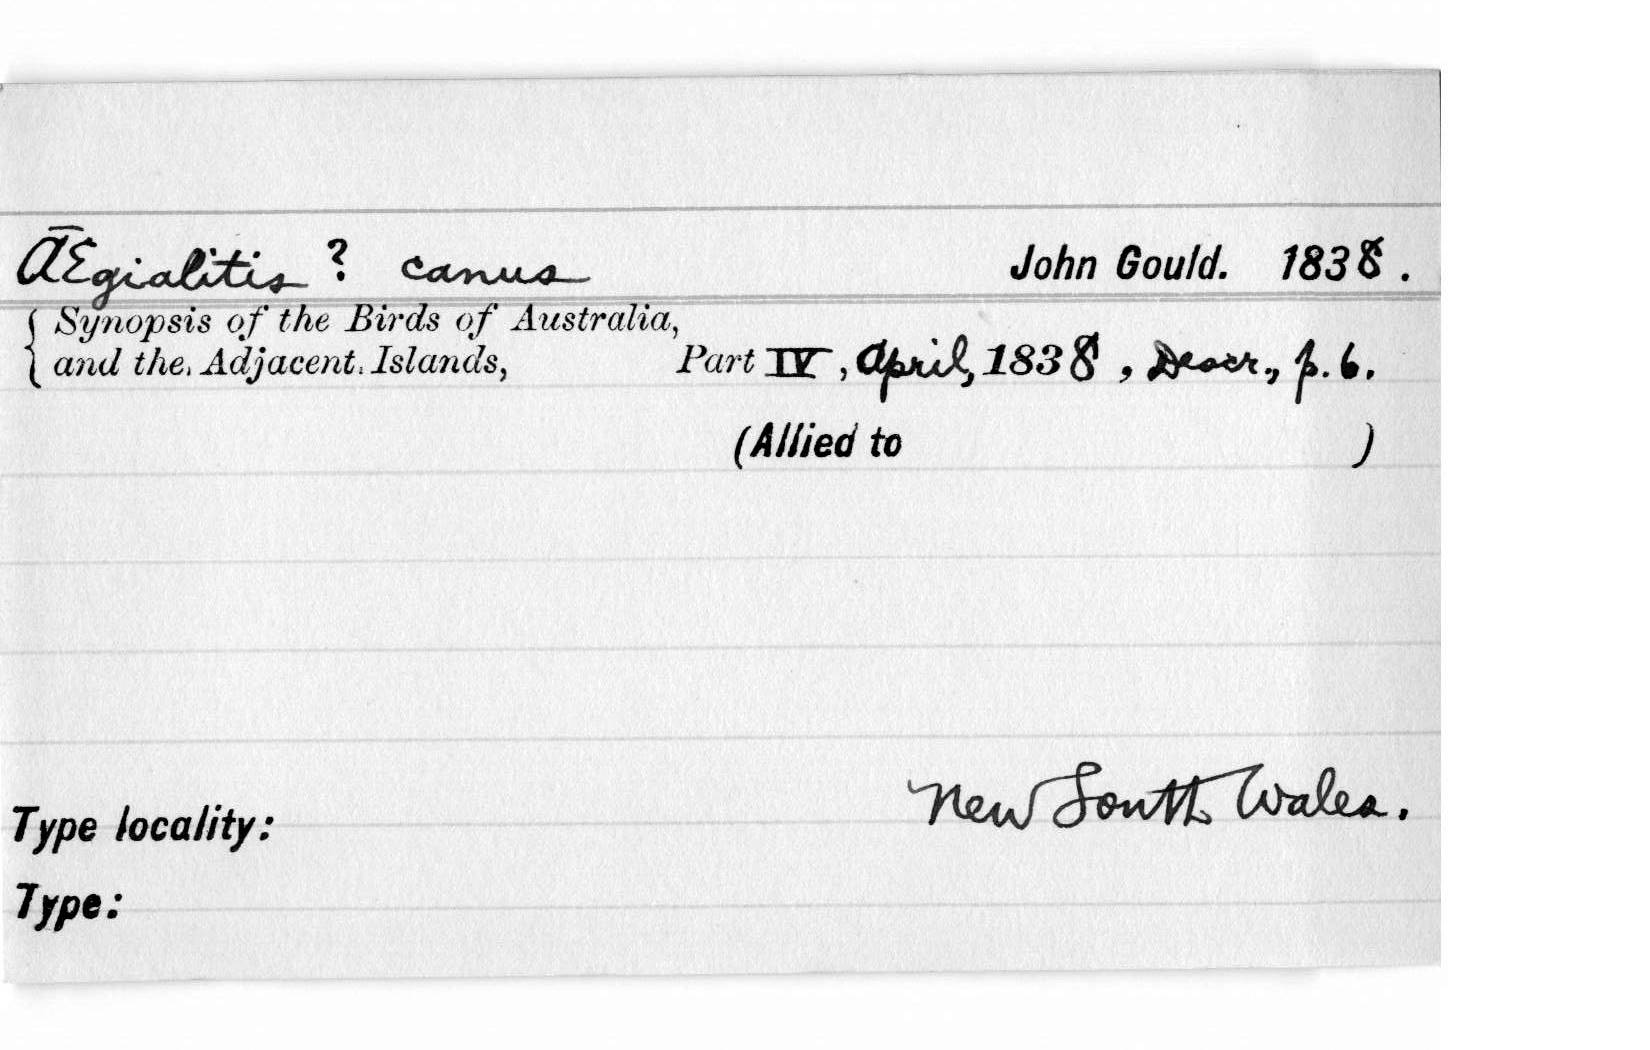 ÆEgialitis ? canus John Gould. 1838.
Synopsis of the Birds of Australia,
and the Adjacent Islands, Part IV, April, 1838, Descr., p. 6.
(Allied to )
New South Wales.
Type locality:
Type: